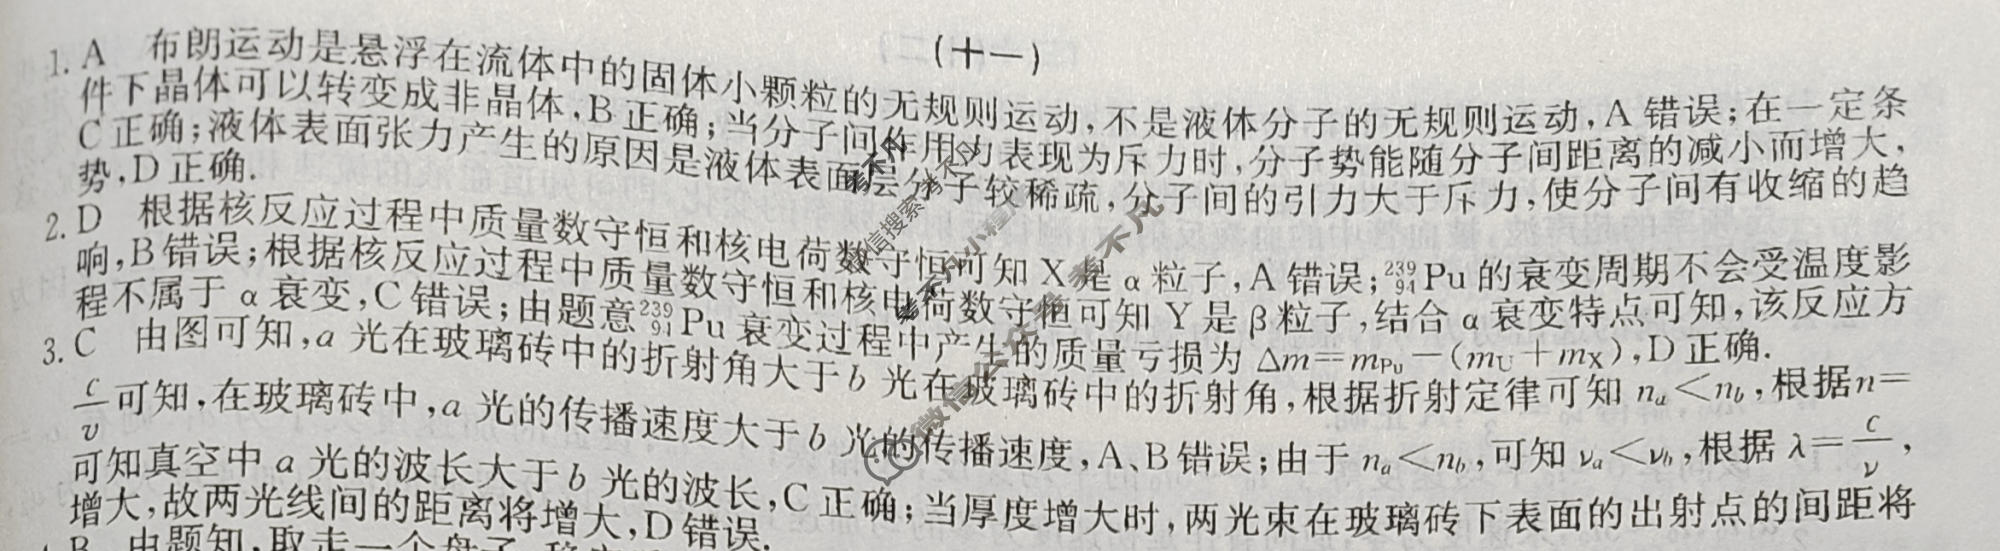 (十一)
1. A 布朗运动是悬浮在流体中的固体小颗粒的无规则运动,不是液体分子的无规则运动,A 错误;在一定条
件下晶体可以转变成非晶体,B 正确;当分子间作用力表现为斥力时,分子势能随分子间距离的减小而增大,
C 正确;液体表面张力产生的原因是液体表面层分子较稀疏,分子间的引力大于斥力,使分子间有收缩的趋
势,D 正确.
2. D 根据核反应过程中质量数守恒和核电荷数守恒可知 X 是 α 粒子,A 错误;²³⁹₉₄Pu 的衰变周期不会受温度影
响,B 错误;根据核反应过程中质量数守恒和核电荷数守恒可知 Y 是 β 粒子,结合 α 衰变特点可知,该反应方
程不属于 α 衰变,C 错误;由题意 ²³⁹₉₄Pu 衰变过程中产生的质量亏损为 Δm=m_Pu-(m_U+m_X),D 正确.
3. C 由图可知,a 光在玻璃砖中的折射角大于 b 光在玻璃砖中的折射角,根据折射定律可知 nₐ<n_b,根据 n=
c/v 可知,在玻璃砖中,a 光的传播速度大于 b 光的传播速度,A、B 错误;由于 nₐ<n_b,可知 νₐ<ν_b,根据 λ=c/ν,
可知真空中 a 光的波长大于 b 光的波长,C 正确;当厚度增大时,两光束在玻璃砖下表面的出射点的间距将
增大,故两光线间的距离将增大,D 错误.
B 由题知,取走一个盘子